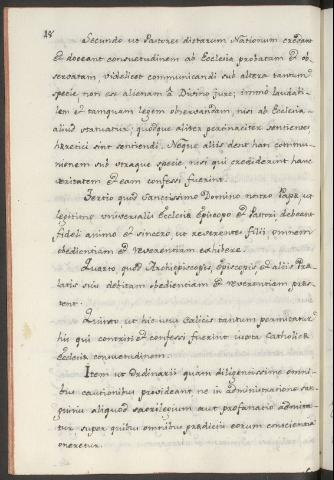 18
Secundo ut Pastores dictarum Nationum credant
et doceant consuetudinem ab Ecclesia probatam et ob-
servatam, videlicet communicandi sub altera tantum
specie non esse alienam à Divino jure; immo laudabi-
lem et tamquam legem observandam, nisi ab Ecclesia
aliud statuatur; quodque aliter pertinaciter sentientes,
hæretici sint sentiendi. Neque aliis dent hanc commu-
nionem sub utraque specie, nisi qui crediderint hanc
veritatem et eam confessi fuerint.
Tertio quod Sanctissimo Domino nostro Papæ, ut
legitimo universalis Ecclesiæ Episcopo et Pastori, debeant
fideli animo et sincero, ut reverentes filii, omnem
obedientiam et reverentiam exhibere.
Quarto quod Archiepiscopis, Episcopis et aliis Præ-
latis suis debitam obedientiam et reverentiam præs-
tent.
Quinto, ut hic usus Calicis tantum permittatur
his qui contriti et confessi fuerint iuxta Catholicæ
Ecclesiæ consuetudinem.
Item ut Ordinarii quam diligentissime omni-
bus cautionibus provideant ne in administratione san-
guinis aliquod sacrilegium aut profanatio admitta-
tur, super quibus omnibus prædictis eorum conscientia
oneretur.